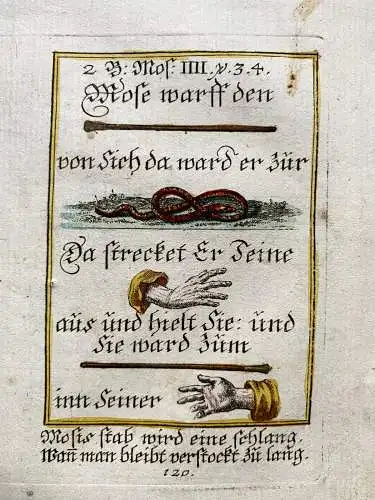 2 B: Mos: IIII. v. 3. 4.
Mose warff den
von Sich da ward er zůr
Da strecket Er Seine
aůs ůnd hielt Sie: ůnd
Sie ward zům
inn Seiner
Mosis stab wird eine schlang.
Wan̄ man bleibt verstockt zů lang.
120.